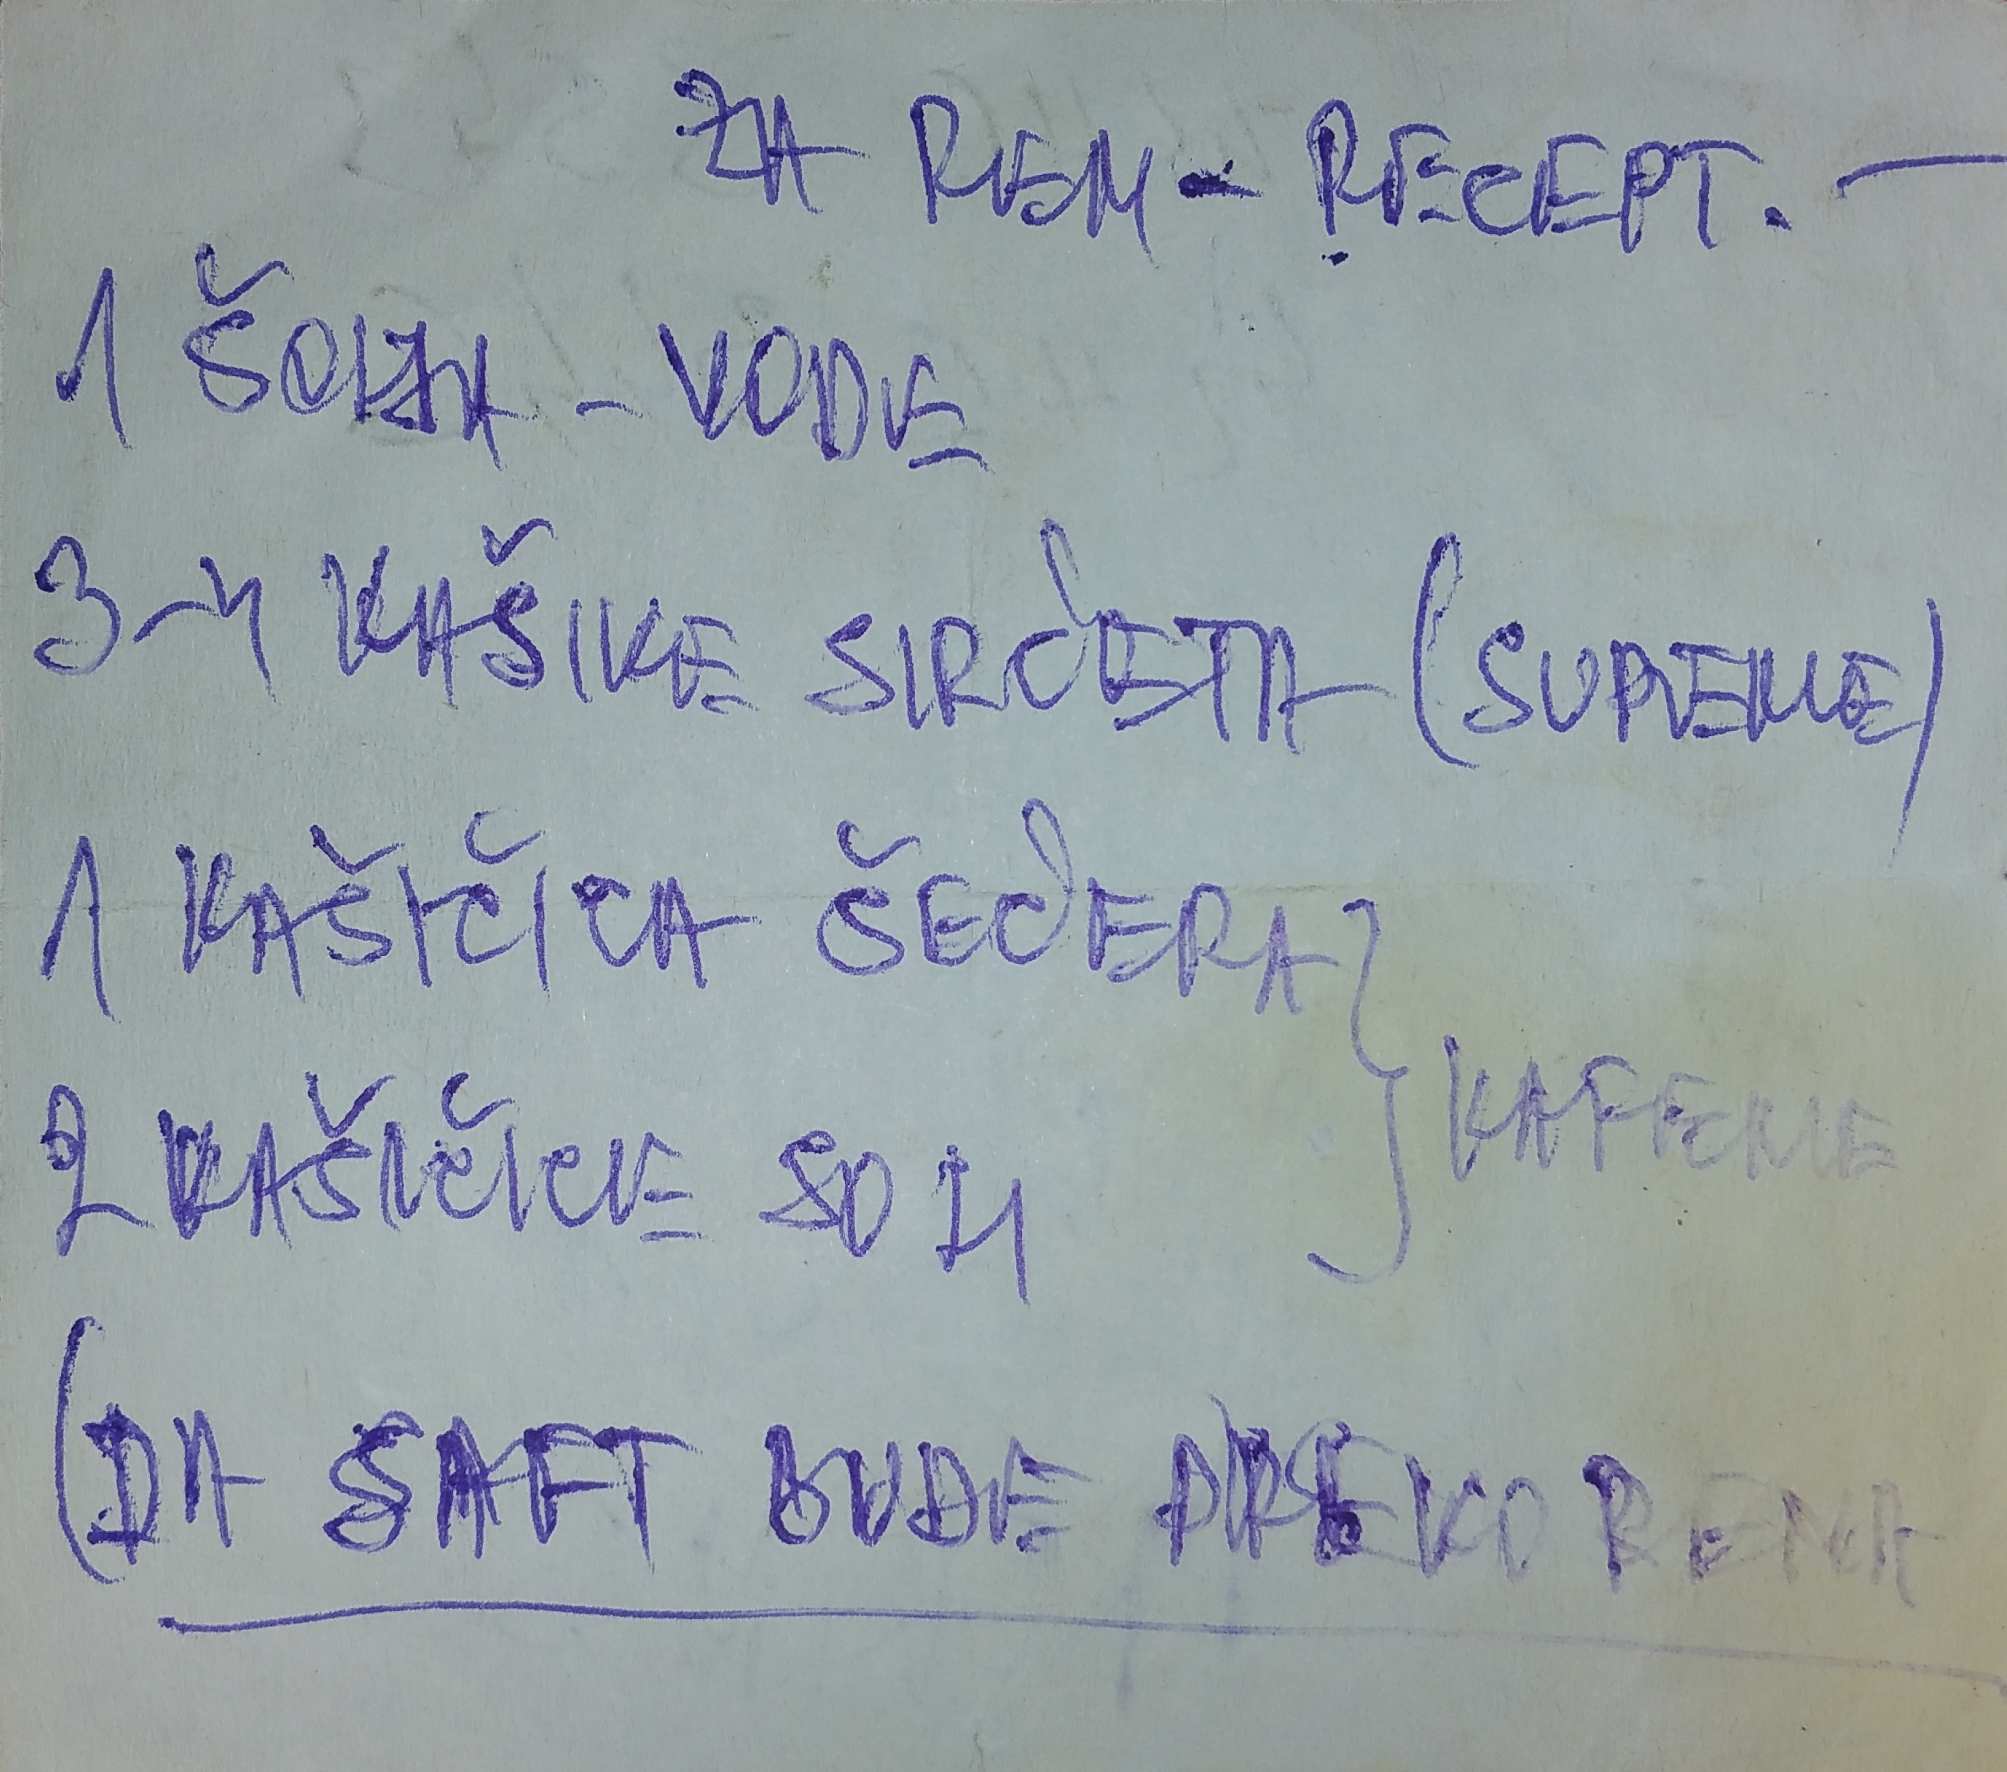 ZA REN - RECEPT. —
1 ŠOLJA - VODE
3-4 KAŠIKE SIRĆETA (SUPENE)
1 KAŠIČICA ŠEĆERA
2 KAŠIČICE SOLI } KAFENE
(DA SAFT BUDE PREKO RENA